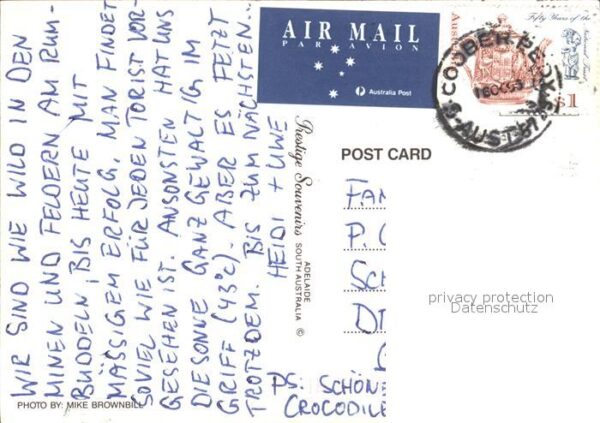 WIR SIND WIE WILD IN DEN
MINEN UND FELDERN AM RUM-
BUDDELN, BIS HEUTE MIT
MÄSSIGEM ERFOLG, MAN FINDET
SOVIEL WIE FÜR JEDEN TORIST VOR-
GESEHEN IST. ANSONSTEN HAT UNS
DIE SONNE GANZ GEWALTIG IM
GRIFF (43°C). ABER ES FETZT
TROTZDEM. BIS ZUM NÄCHSTEN...
HEIDI + UWE
PS: SCHÖNE
CROCODILE
PHOTO BY: MIKE BROWNBILL
AIR MAIL
PAR AVION
Australia Post
Prestige Souvenirs
ADELAIDE
SOUTH AUSTRALIA ©
Fifty Years of the
National Trust
$1
COOBER PEDY
S-AUST
POST CARD
FAM
P.
SCH
privacy protection
Datenschutz